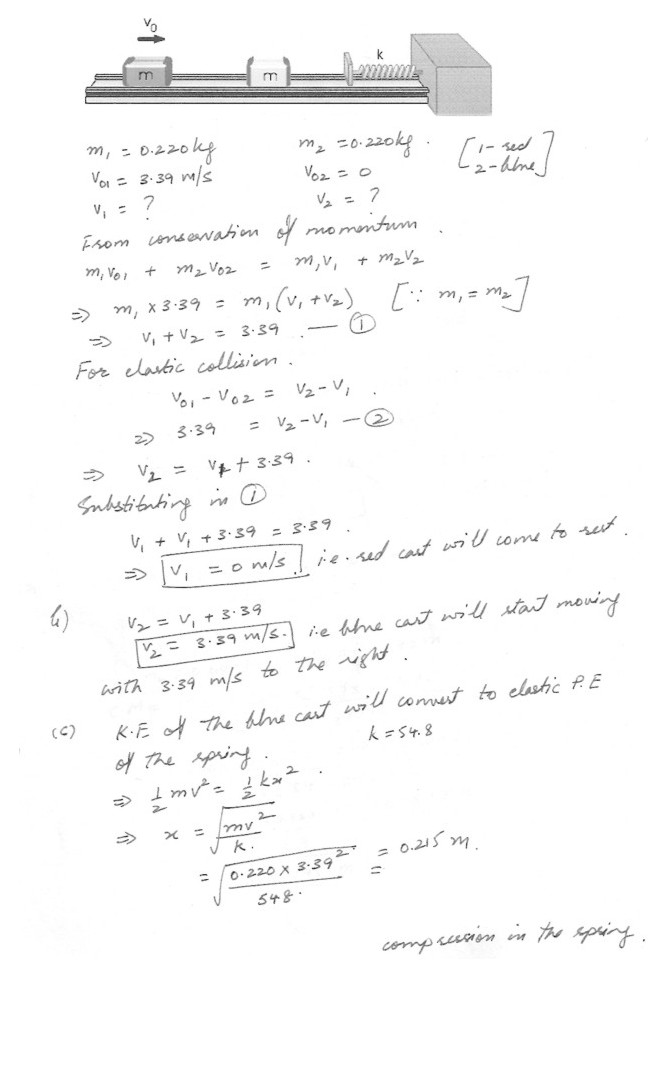 v₀
m
m
k
m₁ = 0.220kg   m₂ = 0.220kg.   [1- red
V₀₁ = 3.39 m/s   V₀₂ = 0   2- blue]
V₁ = ?   V₂ = ?
From conservation of momentum.
m₁V₀₁ + m₂V₀₂ = m₁V₁ + m₂V₂
⇒ m₁ × 3.39 = m₁(V₁+V₂)   [∵ m₁ = m₂]
⇒ V₁ + V₂ = 3.39. — ①
For elastic collision.
V₀₁ - V₀₂ = V₂ - V₁.
⇒ 3.39 = V₂ - V₁ — ②
⇒ V₂ = V₁ + 3.39.
Substituting in ①
V₁ + V₁ + 3.39 = 3.39.
⇒ V₁ = 0 m/s. i.e. red cart will come to rest.
b) V₂ = V₁ + 3.39
V₂ = 3.39 m/s. i.e blue cart will start moving
with 3.39 m/s to the right.
(c) K.E of the blue cart will convert to elastic P.E
of the spring.   k = 54.8
⇒ ½ mv² = ½ kx².
⇒ x = √(mv²/k.)
= √(0.220 × 3.39²/548.) = 0.215 m.
compression in the spring.